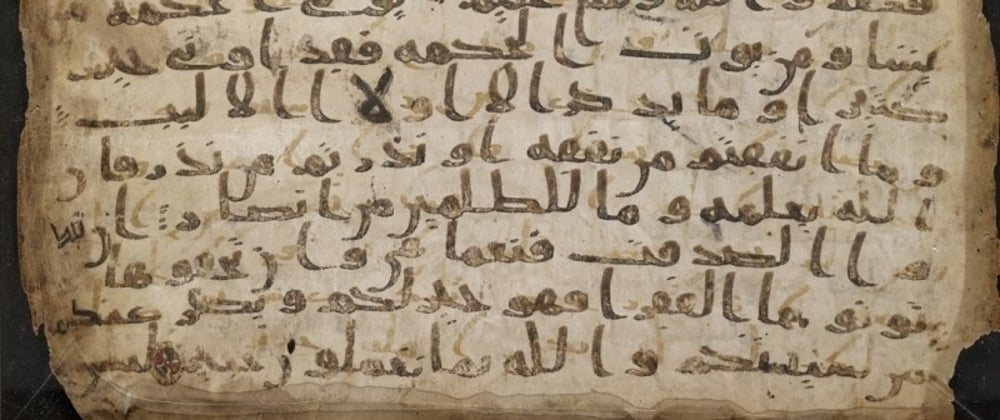 يشا و من يوت الحكمه فقد اوتى خير
كثيرا و ما يذكر الا اولوا الالبب
و ما انفقتم من نفقه او نذرتم من نذر فان
الله يعلمه و ما للظلمين من انصار ان تبد
وا الصدقت فنعما هي و ان تخفوها
و توتوها الفقرا فهو خير لكم و يكفر عنكم
من سيتكم و الله بما تعملون خبير ليس